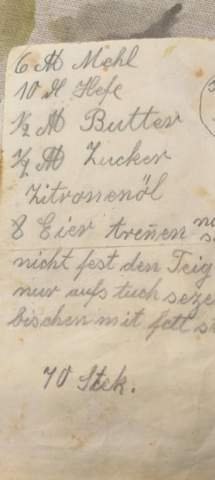 6 ℔ Mehl
10 ₰ Hefe
½ ℔ Butter
½ ℔ Zucker
Zitronenöl
8 Eier treñen
nicht fest den Teig
nur aufs tuch seze
bischen mit fett
70 Stck.